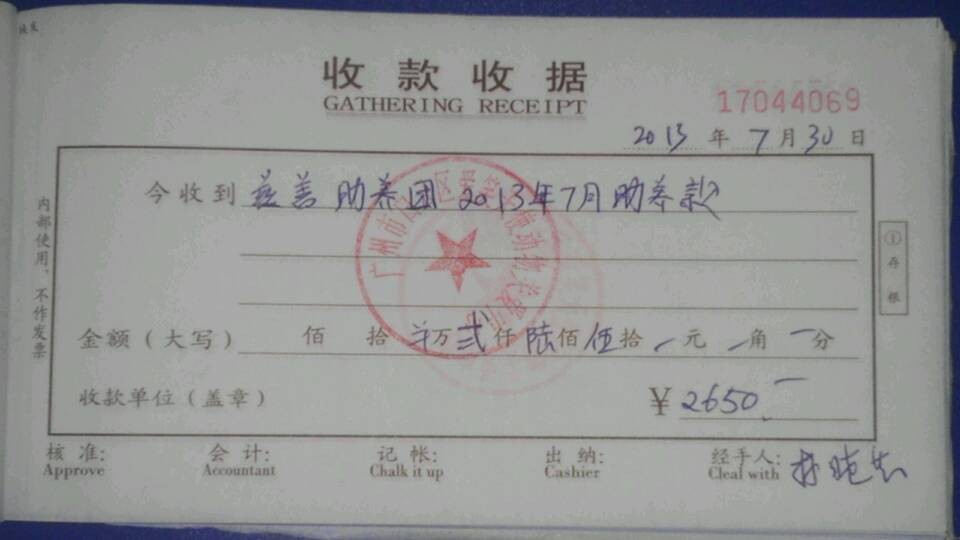 收款收据
GATHERING RECEIPT
17044069
2013年7月30日
今收到 慈善助养团2013年7月助养款
金额（大写） 佰 拾 万贰仟陆佰伍拾 元 角 分
收款单位（盖章） ¥2650
核准: 会计: 记帐: 出纳: 经手人:
Approve Accountant Chalk it up Cashier Cleal with
内部使用，不作发票
①存根
广州市